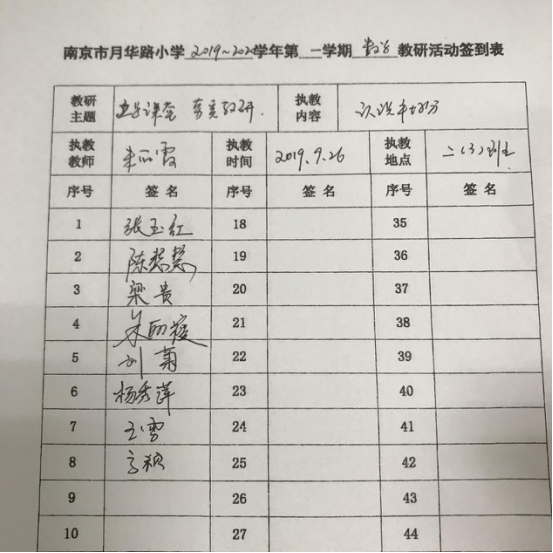 南京市月华路小学 2019~2020学年第 一 学期 数学 教研活动签到表
教研主题 执教内容 认识平均分
执教教师 朱丽霞 执教时间 2019.9.26 执教地点 二(3)班
序号 签名 序号 签名 序号 签名
1 张玉红 18 35
2 陈慧慧 19 36
3 梁贵 20 37
4 朱丽霞 21 38
5 刘菊 22 39
6 杨秀萍 23 40
7 王雪 24 41
8 高颖 25 42
9 26 43
10 27 44